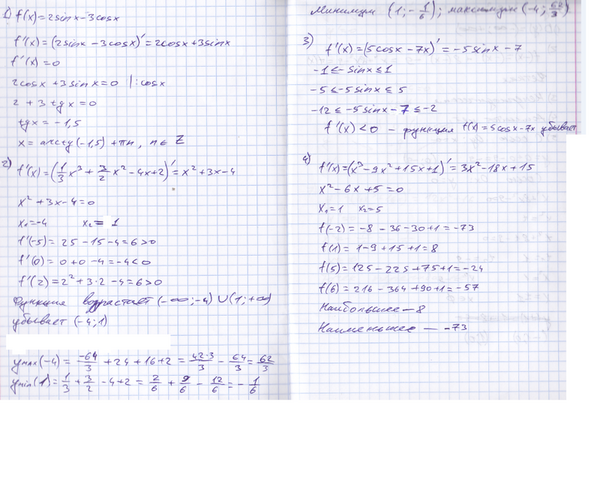 1) f(x)=2sinx-3cosx
f'(x)=(2sinx-3cosx)'=2cosx+3sinx
f'(x)=0
2cosx+3sinx=0 |:cosx
2+3tgx=0
tgx=-1,5
x=arctg(-1,5)+πn, n∈Z
2) f'(x)=(1/3x³+3/2x²-4x+2)'=x²+3x-4
x²+3x-4=0
x₁=-4 x₂=1
f'(-5)=25-15-4=6>0
f'(0)=0+0-4=-4<0
f'(2)=2²+3·2-4=6>0
Функция возрастает (-∞;-4)∪(1;+∞)
убывает (-4;1)
yмах(-4)=-64/3+24+16+2=42·3/3-64/3=62/3
ymin(1)=1/3+3/2-4+2=2/6+9/6-12/6=-1/6
Минимум (1;-1/6); максимум (-4;62/3)
3) f'(x)=(5cosx-7x)'=-5sinx-7
-1≤-sinx≤1
-5≤-5sinx≤5
-12≤-5sinx-7≤-2
f'(x)<0 - функция f(x)=5cosx-7x убывает
4) f'(x)=(x³-9x²+15x+1)'=3x²-18x+15
x²-6x+5=0
x₁=1 x₂=5
f(-2)=-8-36-30+1=-73
f(1)=1-9+15+1=8
f(5)=125-225+75+1=-24
f(6)=216-364+90+1=-57
Наибольшее - 8
Наименьшее - -73